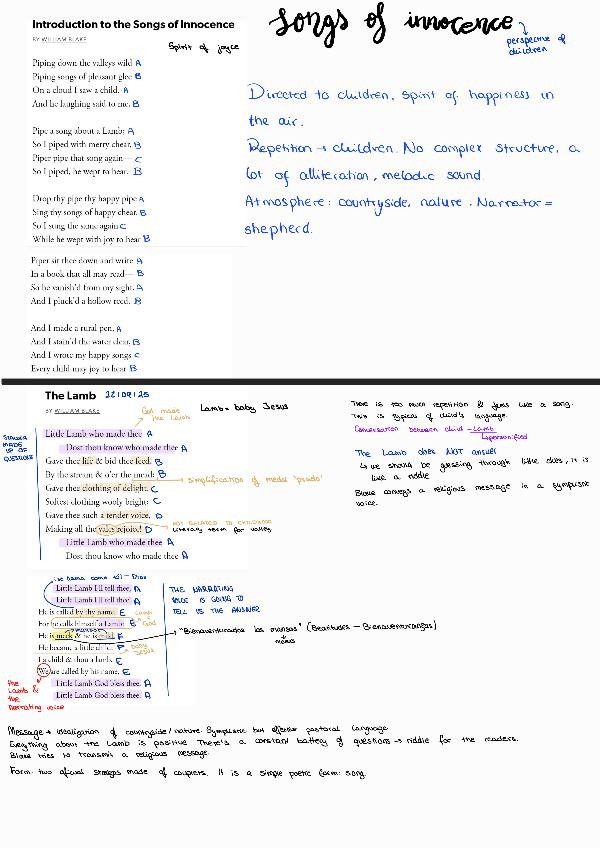 Introduction to the Songs of Innocence
BY WILLIAM BLAKE
Spirit of joyce
songs of innocence
perspective of
children
Piping down the valleys wild A
Piping songs of pleasant glee B
On a cloud I saw a child. A
And he laughing said to me. B
Pipe a song about a Lamb; A
So I piped with merry chear, B
Piper pipe that song again— C
So I piped, he wept to hear. B
Drop thy pipe thy happy pipe A
Sing thy songs of happy chear, B
So I sung the same again C
While he wept with joy to hear B
Piper sit thee down and write A
In a book that all may read— B
So he vanish'd from my sight. A
And I pluck'd a hollow reed. B
And I made a rural pen, A
And I stain'd the water clear, B
And I wrote my happy songs C
Every child may joy to hear B
Directed to children, spirit of happiness in
the air.
Repetition → children. No complex structure, a
lot of alliteration, melodic sound.
Atmosphere: countryside, nature. Narrator =
shepherd.
The Lamb 22/09/25
BY WILLIAM BLAKE
God made
the Lamb
Lamb = baby Jesus
STANZA
MADE
UP OF
QUESTIONS
Little Lamb who made thee A
Dost thou know who made thee A
Gave thee life & bid thee feed. B
By the stream & o'er the mead; B
Gave thee clothing of delight, C
Softest clothing wooly bright; C
Gave thee such a tender voice, D
Making all the vales rejoice! D
Little Lamb who made thee A
Dost thou know who made thee A
simplification of meadow "prado"
NOT RELATED TO CHILDHOOD
Literary term for valley
There is too much repetition & feels like a song.
This is typical of child's language.
Conversation between child - Lamb
↳ personified
The Lamb does NOT answer
↳ we should be guessing through little clues, it is
like a riddle
Blake conveys a religious message in a simplistic
voice.
Little Lamb I'll tell thee, A
Little Lamb I'll tell thee; A
He is called by thy name, E
For he calls himself a Lamb: E
He is meek & he is mild, F
He became a little child: F
I a child & thou a lamb, E
We are called by his name. E
Little Lamb God bless thee. A
Little Lamb God bless thee. A
Lamb
=
God
baby
JESUS
THE NARRATING
VOICE IS GOING TO
TELL US THE ANSWER
"Bienaventurados los mansos" (Beatitudes - Bienaventuranzas)
the
Lamb &
the
narrating voice
Message → idealization of countryside/nature. Simplistic but effective pastoral language.
Everything about the Lamb is positive. There's a constant battery of questions → riddle for the readers.
Blake tries to transmit a religious message.
Form: two stanzas made of couplets. It is a simple poetic form: song.